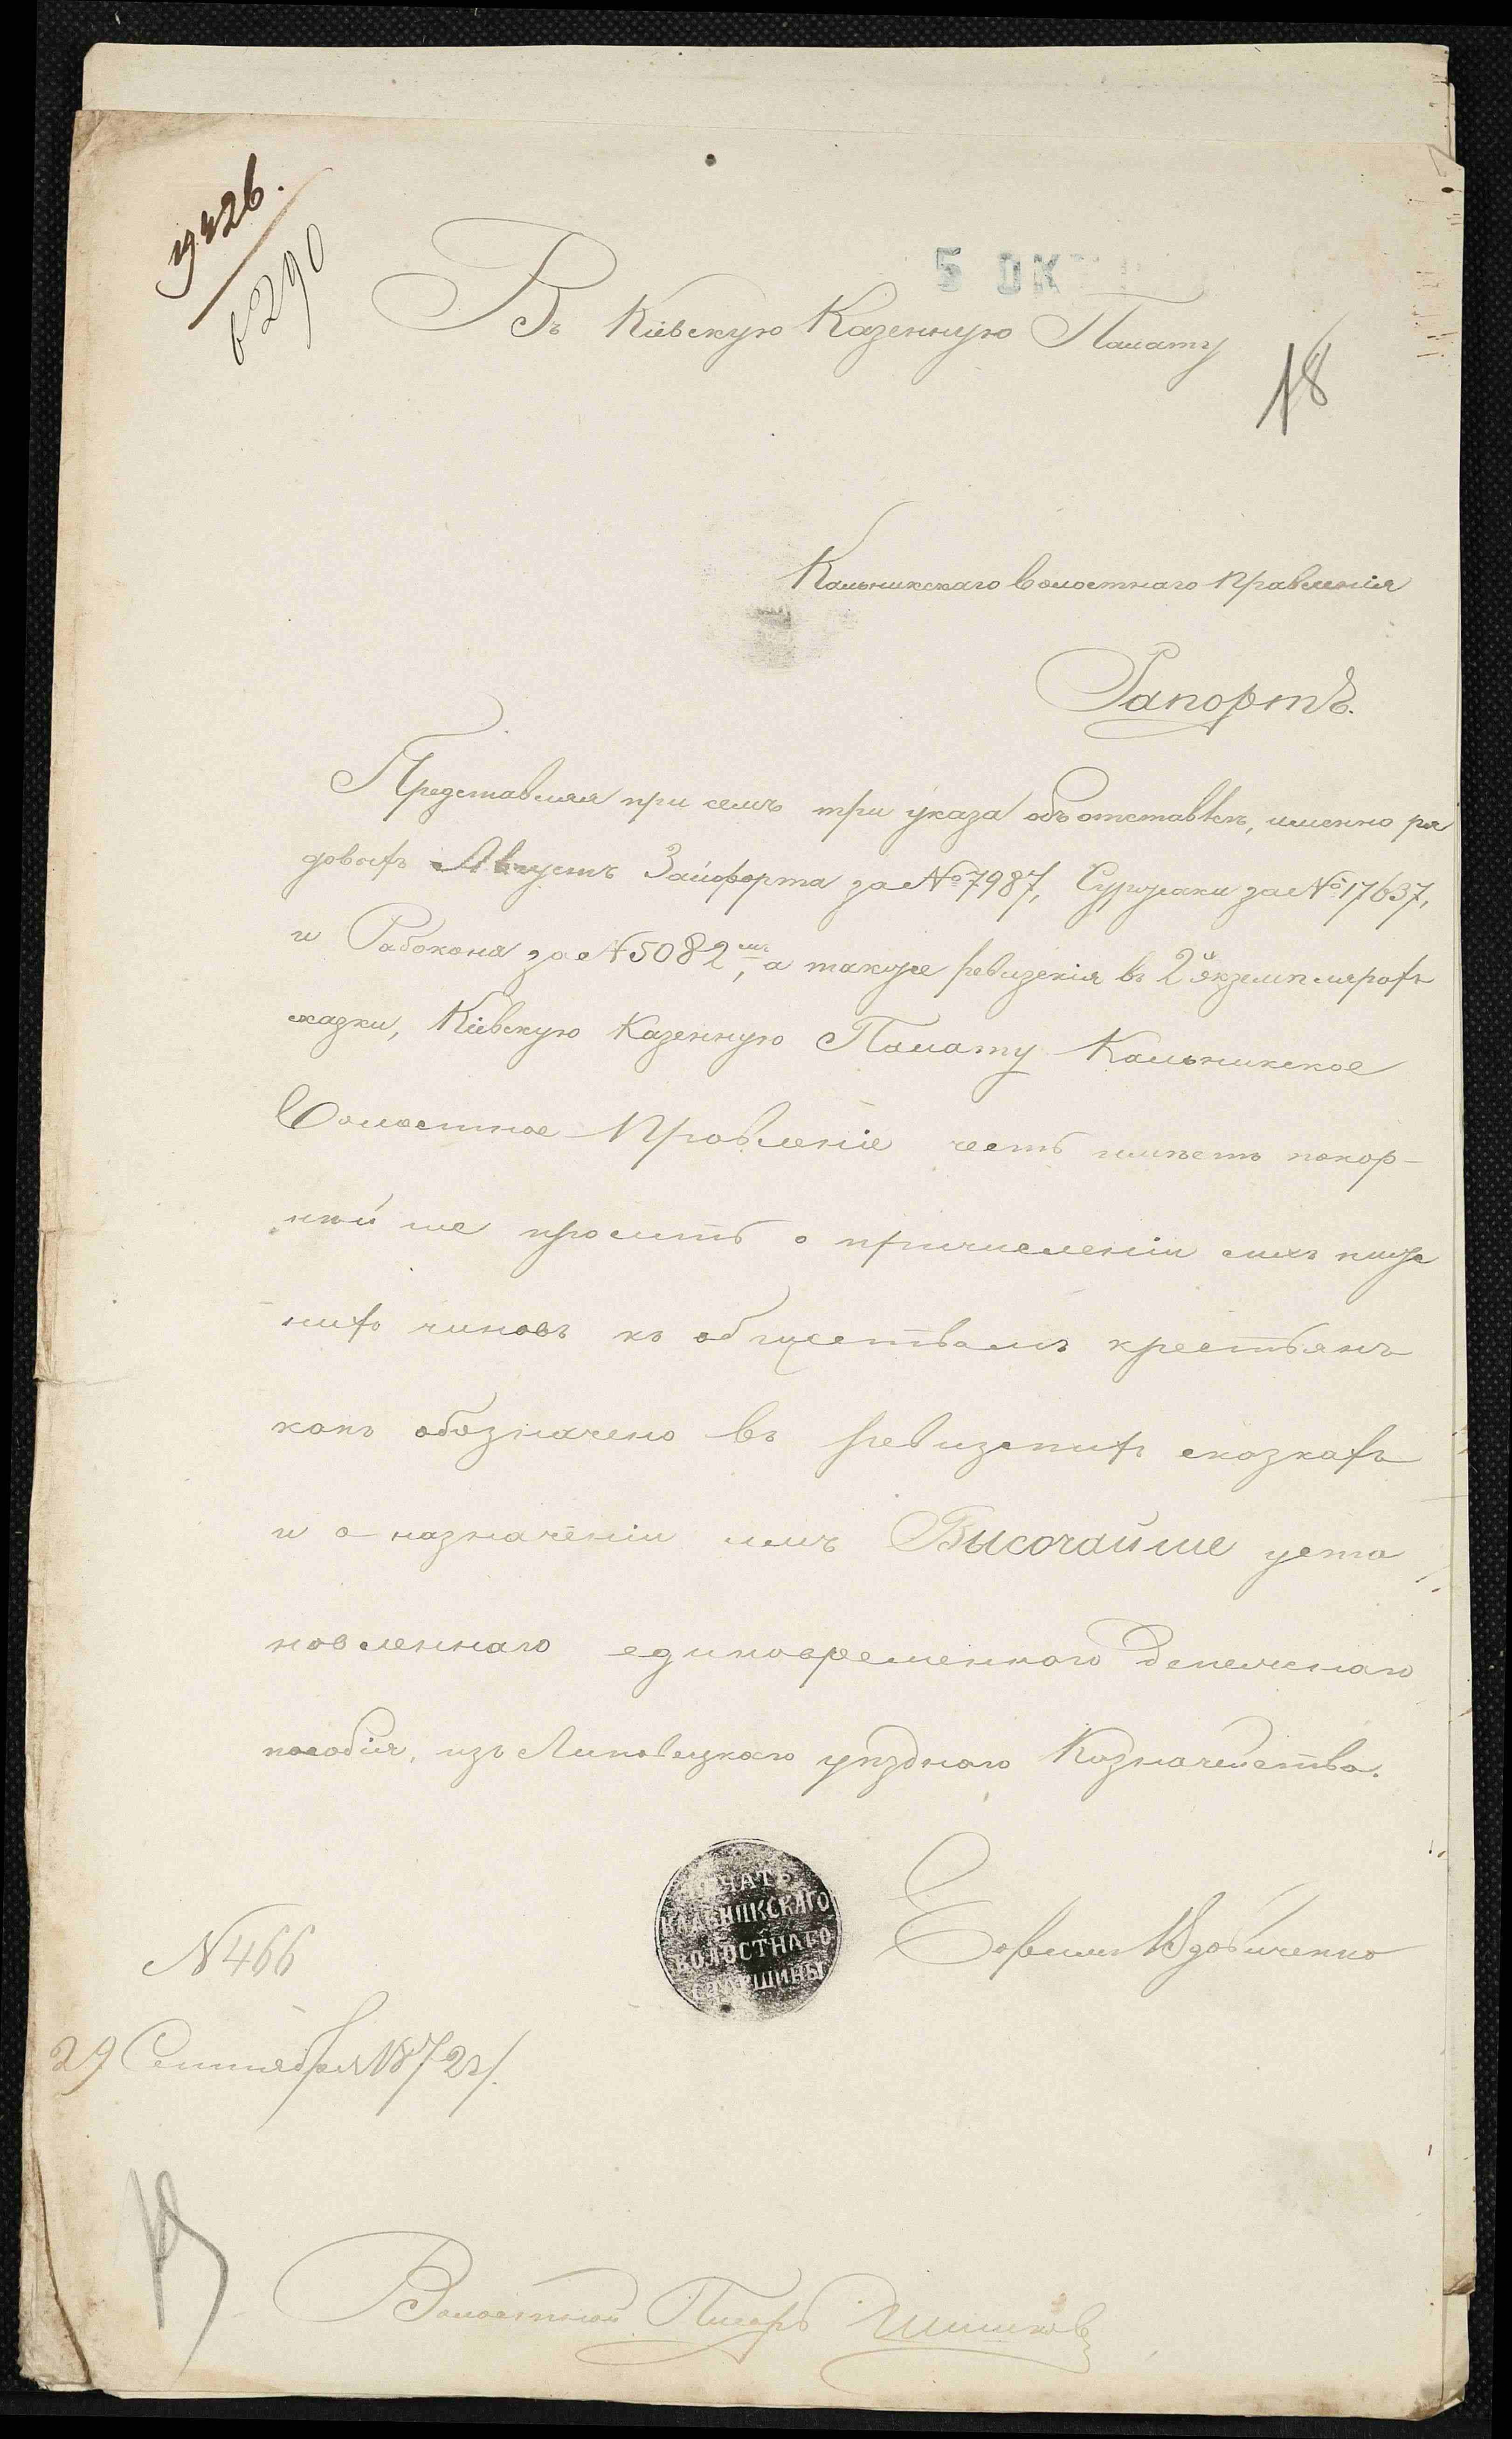 19426.
6290
5 ОКТ
Въ Кіевскую Казенную Палату
18
Кальникскаго Волостнаго Правленія
Рапортъ.
Представляя при семъ три указа объ отставкѣ, именно ря
довыхъ Августъ Зайферта за №7987, Суржаки за №17637,
и Рабоконя за №5082емъ, а также ревизскія въ 2й экземплярахъ
сказки, Кіевскую Казенную Палату Кальникское
Волостное Правленіе честь имѣетъ покор-
нѣйше просить о причисленіи сихъ ниж
нихъ чиновъ къ обществамъ крестьянъ
какъ обозначено въ ревизскихъ сказкахъ
и о назначеніи имъ Высочайше уста
новленнаго единовременнаго денежнаго
пособія, изъ Липовецкаго уѣзднаго Казначейства.
ПЕЧАТЬ
КАЛЬНИКСКАГО
ВОЛОСТНАГО
СТАРШИНЫ
Вдовиченко
N466
29 Сентября 1872 г.
Волостной Писарь